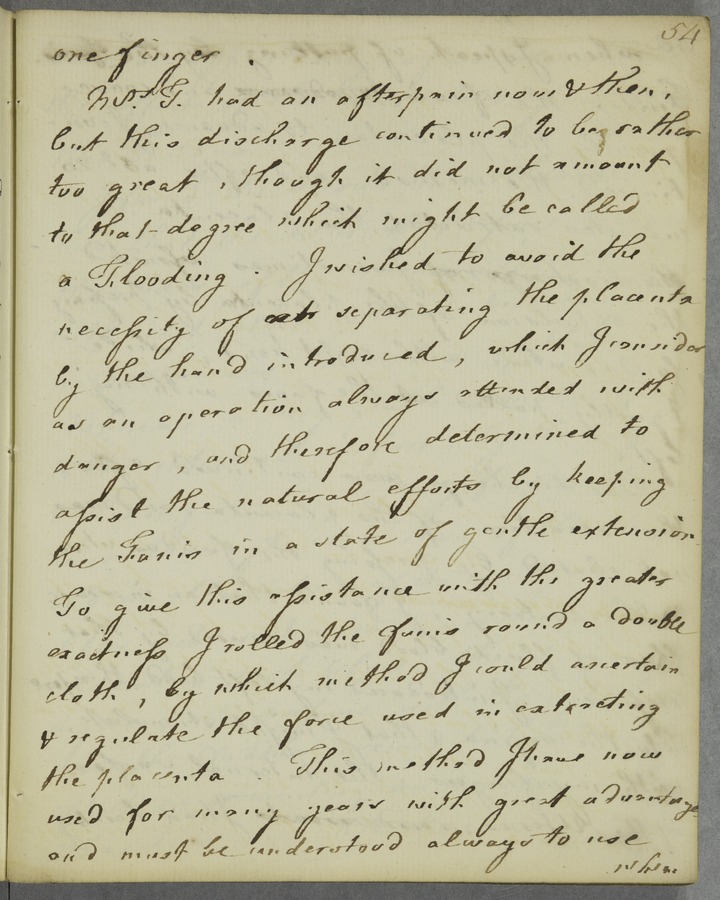 54
one finger .
Mrs. T. had an afterpain now & then,
but this discharge continued to be rather
too great , though it did not amount
to that degree which might be called
a Flooding . I wished to avoid the
necessity of separating the placenta
by the hand introduced , which I consider
as an operation always attended with
danger , and therefore determined to
assist the natural efforts by keeping
the Funis in a state of gentle extension
To give this assistance with the greater
exactness I rolled the funis round a double
cloth , by which method I could ascertain
& regulate the force used in extracting
the placenta . This method I have now
used for many years with great advantage
and must be understood always to use
when